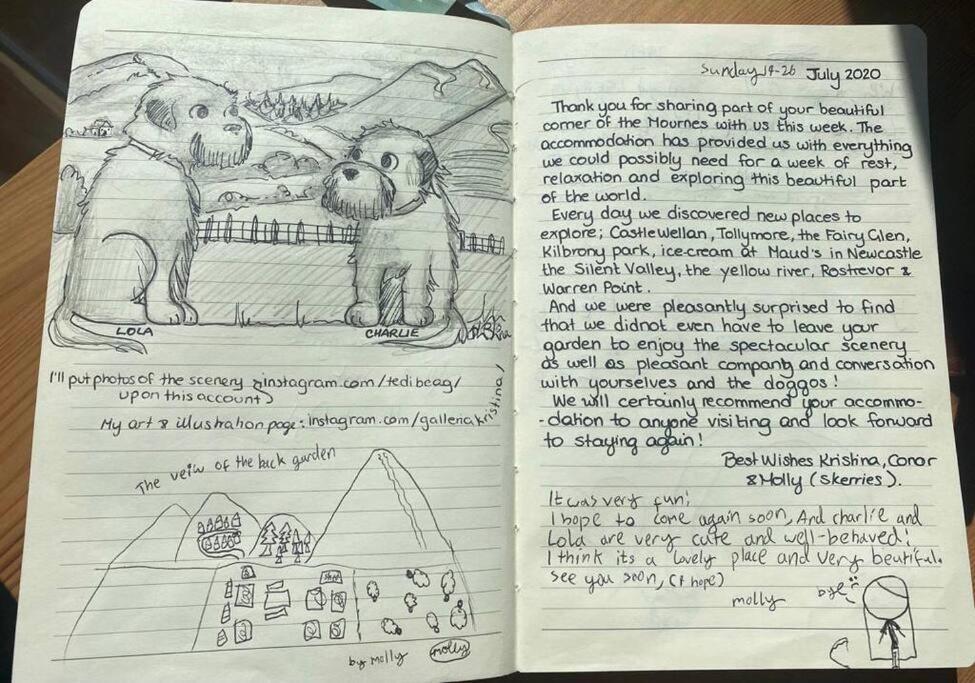 LOLA
CHARLIE
I'll put photos of the scenery
instagram.com/tedibeag/
upon this account)
My art & illustration page: instagram.com/galleriakristina/
The veiw of the back garden
by molly
molly
Sunday 19-26 July 2020
Thank you for sharing part of your beautiful
corner of the Mournes with us this week. The
accommodation has provided us with everything
we could possibly need for a week of rest,
relaxation and exploring this beautiful part
of the world.
Every day we discovered new places to
explore; Castlewellan, Tollymore, the Fairy Glen,
Kilbrony park, ice-cream at Maud's in Newcastle
the Silent Valley, the yellow river, Rostrevor &
Warren Point.
And we were pleasantly surprised to find
that we didnot even have to leave your
garden to enjoy the spectacular scenery
as well as pleasant company and conversation
with yourselves and the doggos!
We will certainly recommend your accommo-
-dation to anyone visiting and look forward
to staying again!
Best Wishes Kristina, Conor
& Molly (Skerries).
It was very fun!
I hope to come again soon, And charlie and
Lola are very cute and well-behaved!
I think its a lovely place and very beutiful.
see you soon, (I hope)
molly
bye